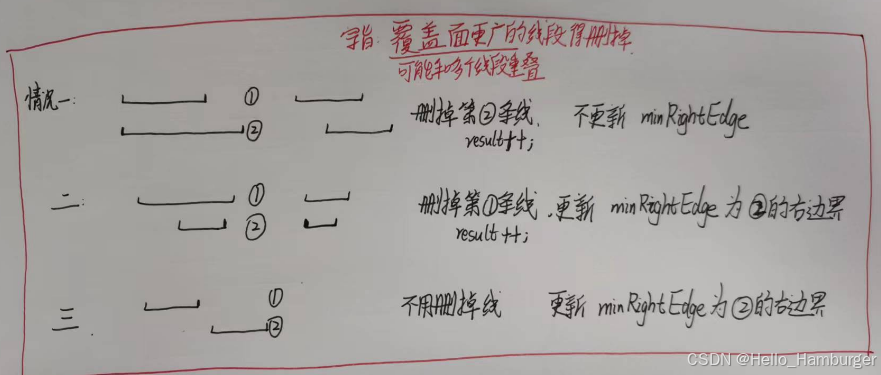 宗旨: 覆盖面更广的线段得删掉
可能和多个线段重叠
情况一: ① 删掉第②条线, 不更新 minRightEdge
② result++;
二: ① 删掉第①条线, 更新 minRightEdge 为②的右边界
② result++;
三 ① 不用删掉线 更新 minRightEdge 为②的右边界
②
CSDN @Hello_Hamburger